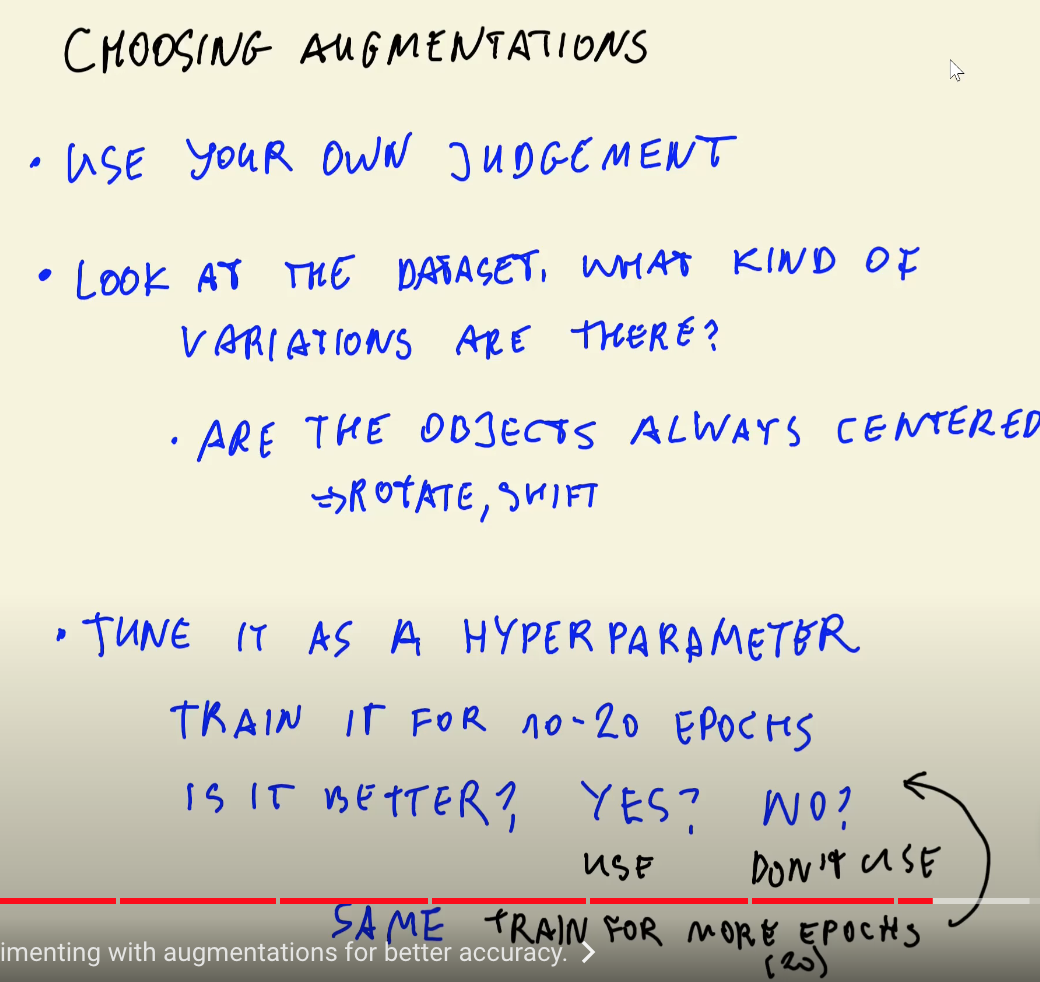 CHOOSING AUGMENTATIONS
• USE YOUR OWN JUDGEMENT
• LOOK AT THE DATASET, WHAT KIND OF
VARIATIONS ARE THERE?
• ARE THE OBJECTS ALWAYS CENTERED
⇒ ROTATE, SHIFT
• TUNE IT AS A HYPERPARAMETER
TRAIN IT FOR 10-20 EPOCHS
IS IT BETTER? YES? NO?
USE DON'T USE
SAME TRAIN FOR MORE EPOCHS
imenting with augmentations for better accuracy.
(20)